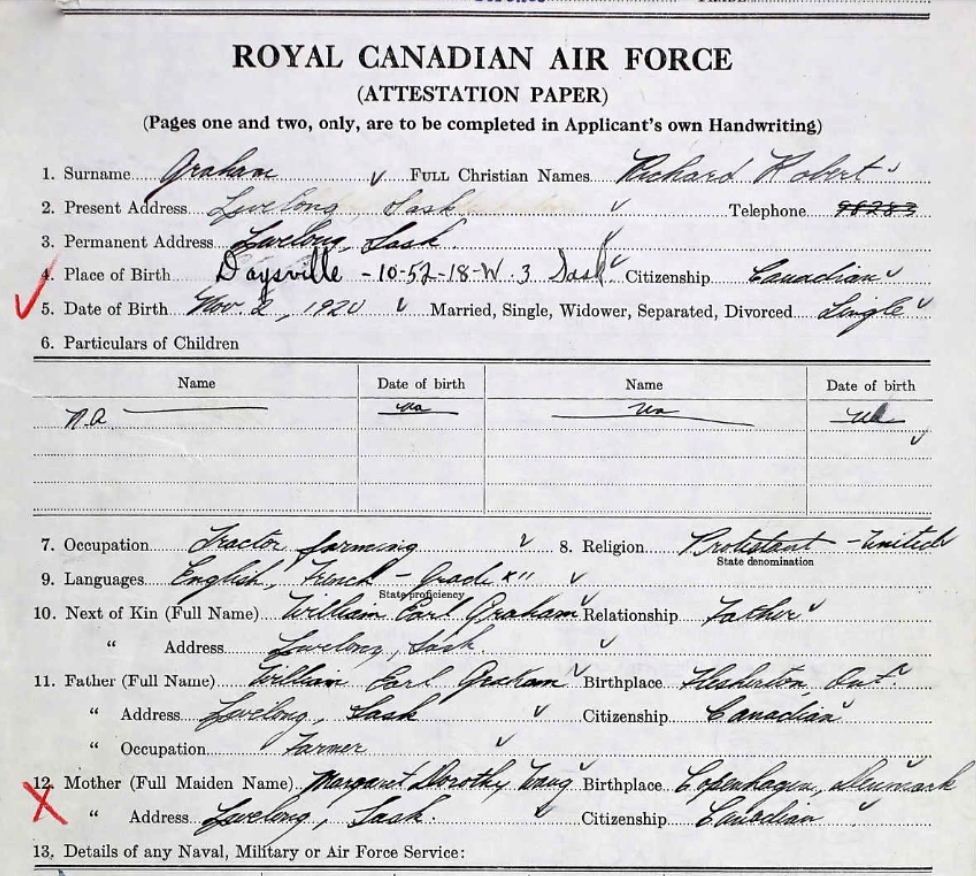 ROYAL CANADIAN AIR FORCE
(ATTESTATION PAPER)
(Pages one and two, only, are to be completed in Applicant's own Handwriting)
1. Surname Graham FULL Christian Names Richard Robert
2. Present Address Livelong, Sask Telephone 98283
3. Permanent Address Livelong, Sask.
4. Place of Birth Daysville - 10-52-18-W. 3 Sask Citizenship Canadian
5. Date of Birth Nov. 2, 1920 Married, Single, Widower, Separated, Divorced Single
6. Particulars of Children
Name Date of birth Name Date of birth
N.A. na na na
7. Occupation Tractor farming 8. Religion Protestant - United
State denomination
9. Languages English, French - Grade XII
State proficiency
10. Next of Kin (Full Name) William Earl Graham Relationship Father
" Address Livelong, Sask.
11. Father (Full Name) William Earl Graham Birthplace Flesherton, Ont.
" Address Livelong, Sask Citizenship Canadian
" Occupation Farmer
12. Mother (Full Maiden Name) Margaret Dorothy Birthplace Copenhagen, Denmark
" Address Livelong, Sask. Citizenship Canadian
13. Details of any Naval, Military or Air Force Service: